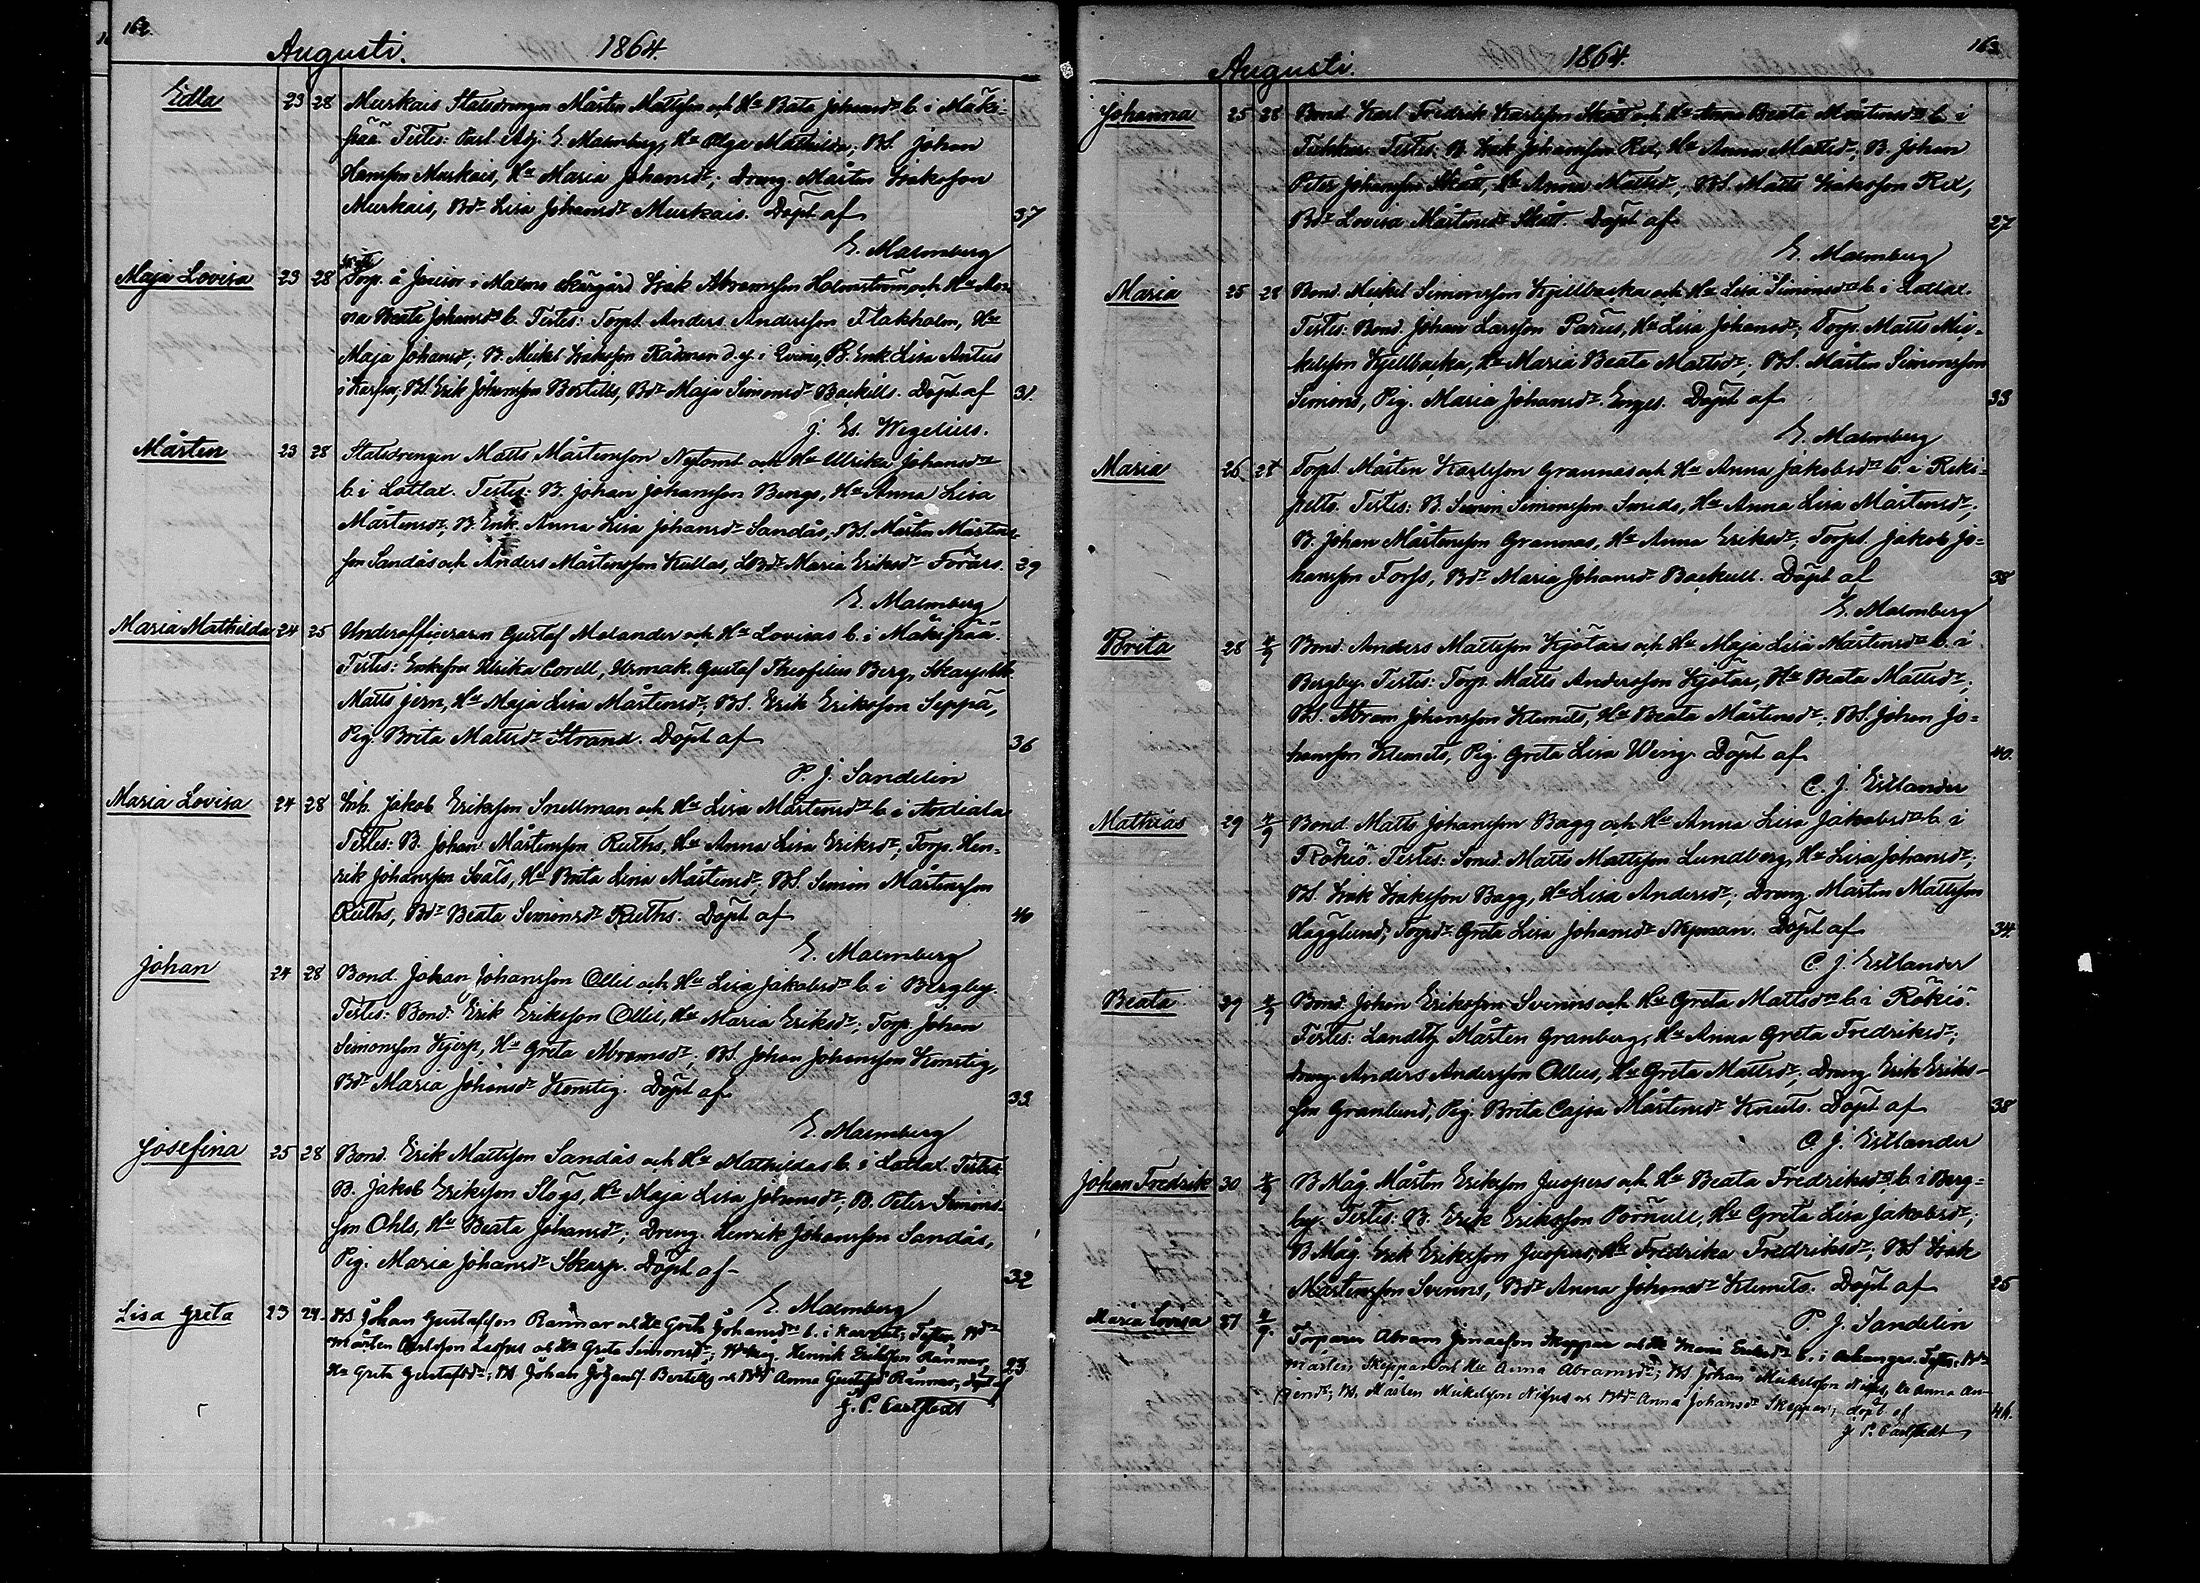 162.
Augusti. 1864.
Edla 23 28 Murkais Statsdrengen Mårten Mattsson och Hu Beata Johansdr b. i Mäki-
pää. Testes: Past. Adj. E. Malmberg, Hu Olga Mathilda; BS. Johan
Hansson Murkais, Hu Maria Johansdr; Dreng Mårten Isaksson
Murkais, Bdr Lisa Johansdr Murkais. Döpt af 37
E. Malmberg
Maja Lovisa 23 28 Torp. å i Malmö Skärgård Isak Abramsson Holmström och Hu An-
na Beata Johansdr b. Testes: Torpt. Anders Andersson Flakholm, Hu
Maja Johansdr; B. Mickel Isaksson Rådman d.y. i B. Enk. Lisa Antus
i BS. Erik Johansson Bertills, Bdr Maja Simonsdr Backills. Döpt af 31.
J. Es. Wegelius.
Mårten 23 28 Statsdrengen Matts Mårtensson Nytomt och Hu Ulrika Johansdr
b. i Lotlax. Testes: B. Johan Johansson Bengs, Hu Anna Lisa
Mårtensdr; B. Enk. Anna Lisa Johansdr Sandås, BS. Mårten Mårtens-
son Sandås och Anders Mårtensson Kullas, Bdr Maria Eriksdr Förars. 29
E. Malmberg
Maria Mathilda 24 25 Underofficeraren Gustaf Molander och Hu Lovisas b. i Mäkipää.
Testes: Enkefru Ulrika Corell, Urmak. Gustaf Theofilus Berg, Skarpsk.
Matts Jern, Hu Maja Lisa Mårtensdr; BS. Erik Eriksson Seppä,
Pig. Brita Mattsdr Strand. Döpt af 36
P. J. Sandelin
Maria Lovisa 24 28 Inh. Jakob Eriksson Snellman och Hu Lisa Mårtensdr b. i Andiala
Testes: B. Johan Mårtensson Ruths, Hu Anna Lisa Eriksdr; Torp. Hen-
rik Johansson Svals, Hu Brita Lina Mårtensdr; BS. Simon Mårtensson
Ruths, Bdr Beata Simonsdr Ruths. Döpt af 40
E. Malmberg
Johan 24 28 Bond. Johan Johansson Ollil och Hu Lisa Jakobsdr b. i Bergby.
Testes: Bond. Erik Eriksson Ollil, Hu Maria Eriksdr; Torp. Johan
Simonsson Kjerp, Hu Greta Abramsdr; BS. Johan Johansson Konstig,
Bdr Maria Johansdr Konstig. Döpt af 33.
E. Malmberg
Josefina 25 28 Bond. Erik Mattsson Sandås och Hu Mathildas b. i Lotlax. Testes:
B. Jakob Eriksson Slögs, Hu Maja Lisa Johansdr; B. Peter Simons-
son Ohls, Hu Beata Johansdr; Dreng. Henrik Johansson Sandås,
Pig. Maria Johansdr Skarp. Döpt af 32
E. Malmberg
Lisa Greta 23 24. BS. Johan Gustafsson Rännar och Hu Greta Johansdr b. i Karvat; Testes: Bdr
Mårten Carlsson och Hu Greta Simonsdr; BMåg. Henrik Eriksson Rännar,
Hu Greta Gustafsdr; BS. Johan Johanss. Bertills och Bdr Anna Gustafsdr Rännar, döpt af 23
J. P. Carlstedt
163.
Augusti. 1864.
Johanna 25 28 Bond. Karl Fredrik Karlsson Skått och Hu Anna Beata Mårtensdr b. i
Testes: B. Isak Johansson Rex, Hu Anna Mattsdr; B. Johan
Peter Johansson Skått, Hu Anna Mattsdr; BS. Matts Isaksson Rex,
Bdr Lovisa Mårtensdr Skått. Döpt af 27
E. Malmberg
Maria 25 28 Bond. Mickel Simonsson Kjellbacka och Hu Lisa Simonsdr b. i Lotlax.
Testes: Bond. Johan Larsson Parus, Hu Lisa Johansdr; Torp. Matts Mic-
kelsson Kjellbacka, Hu Maria Beata Mattsdr; BS. Mårten Simonsson
Simons, Pig. Maria Johansdr Enges. Döpt af 33
E. Malmberg
Maria 26 28 Torpt. Mårten Karlsson Grannas och Hu Anna Jakobsdr b. i Reki-
pelto. Testes: B. Simon Simonsson Smeds, Hu Anna Lisa Mårtensdr;
B. Johan Mårtensson Grannas, Hu Anna Eriksdr; Torpt. Jakob Jo-
hansson Forss, Bdr Maria Johansdr Backull. Döpt af 38
E. Malmberg
Brita 28 4/9 Bond. Anders Mattsson Kjötar och Hu Maja Lisa Mårtensdr b. i
Bergby. Testes: Torp. Matts Andersson Kjötar, Hu Beata Mattsdr;
BS. Abram Johansson Klemets, Hu Beata Mårtensdr; BS. Johan Jo-
hansson Klemets, Pig. Greta Lisa Weng. Döpt af 40.
C. J. Estlander
Mathias 29 4/9 Bond. Matts Johansson Bagg och Hu Anna Lisa Jakobsdr b. i
Rökiö. Testes: Smed. Matts Mattsson Lundberg, Hu Lisa Johansdr;
BS. Isak Isaksson Bagg, Hu Lisa Andersdr; Dreng. Mårten Mattsson
Hägglund, Torpdr Greta Lisa Johansdr Nyman. Döpt af 34.
C. J. Estlander
Beata 29 4/9 Bond. Johan Eriksson Svenns och Hu Greta Mattsdr b. i Rökiö.
Testes: Landtbj Mårten Granberg, Hu Anna Greta Fredriksdr;
Dreng. Anders Andersson Ollus, Hu Greta Mattsdr; Dreng. Erik Eriks-
son Granlund, Pig. Brita Cajsa Mårtensdr Knuts. Döpt af 38
C. J. Estlander
Johan Fredrik 30 4/9 B.Måg. Mårten Eriksson Juopers och Hu Beata Fredriksdr b. i Berg-
by. Testes: B. Erik Eriksson Pörnull, Hu Greta Lisa Jakobsdr;
B.Måg. Erik Eriksson Juopers, Hu Fredrika Fredriksdr; BS. Isak
Mårtensson Svenns, Bdr Anna Johansdr Klemets. Döpt af 25
P. J. Sandelin
Maria Lovisa 31 4/9. Torparen Abram Jonasson Skeppar och Hu Maria Eriksdr b. i Testes: Bdr
Mårten Skeppar och Hu Anna Abramsdr; BS. Johan Mickelsson Nissus, Hu Anna An-
BS. Mårten Mickelsson Nissus och Bdr Anna Johansdr Skeppar, döpt af 44.
J. P. Carlstedt